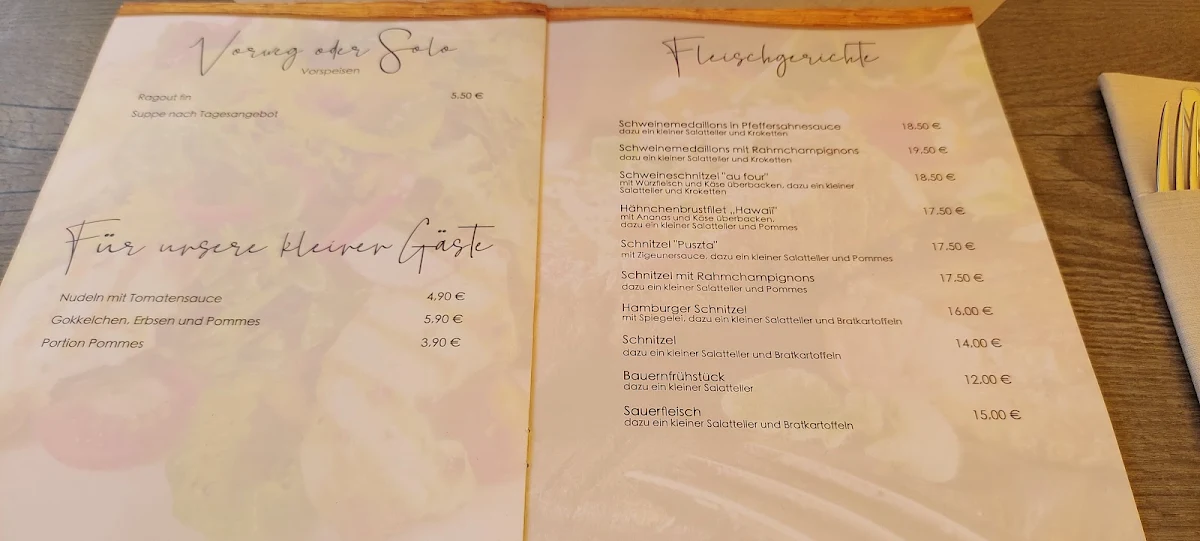 Vorweg oder Solo
Vorspeisen
Ragout fin 5.50 €
Suppe nach Tagesangebot
Für unsere kleinen Gäste
Nudeln mit Tomatensauce 4,90 €
Gokkelchen, Erbsen und Pommes 5.90 €
Portion Pommes 3.90 €
Fleischgerichte
Schweinemedaillons in Pfeffersahnesauce 18.50 €
dazu ein kleiner Salatteller und Kroketten
Schweinemedaillons mit Rahmchampignons 19.50 €
dazu ein kleiner Salatteller und Kroketten
Schweineschnitzel "au four" 18.50 €
mit Würzfleisch und Käse überbacken, dazu ein kleiner
Salatteller und Kroketten
Hähnchenbrustfilet „Hawaii" 17.50 €
mit Ananas und Käse überbacken,
dazu ein kleiner Salatteller und Pommes
Schnitzel "Puszta" 17.50 €
mit Zigeunersauce, dazu ein kleiner Salatteller und Pommes
Schnitzel mit Rahmchampignons 17.50 €
dazu ein kleiner Salatteller und Pommes
Hamburger Schnitzel 16.00 €
mit Spiegelei, dazu ein kleiner Salatteller und Bratkartoffeln
Schnitzel 14.00 €
dazu ein kleiner Salatteller und Bratkartoffeln
Bauernfrühstück 12.00 €
dazu ein kleiner Salatteller
Sauerfleisch 15.00 €
dazu ein kleiner Salatteller und Bratkartoffeln